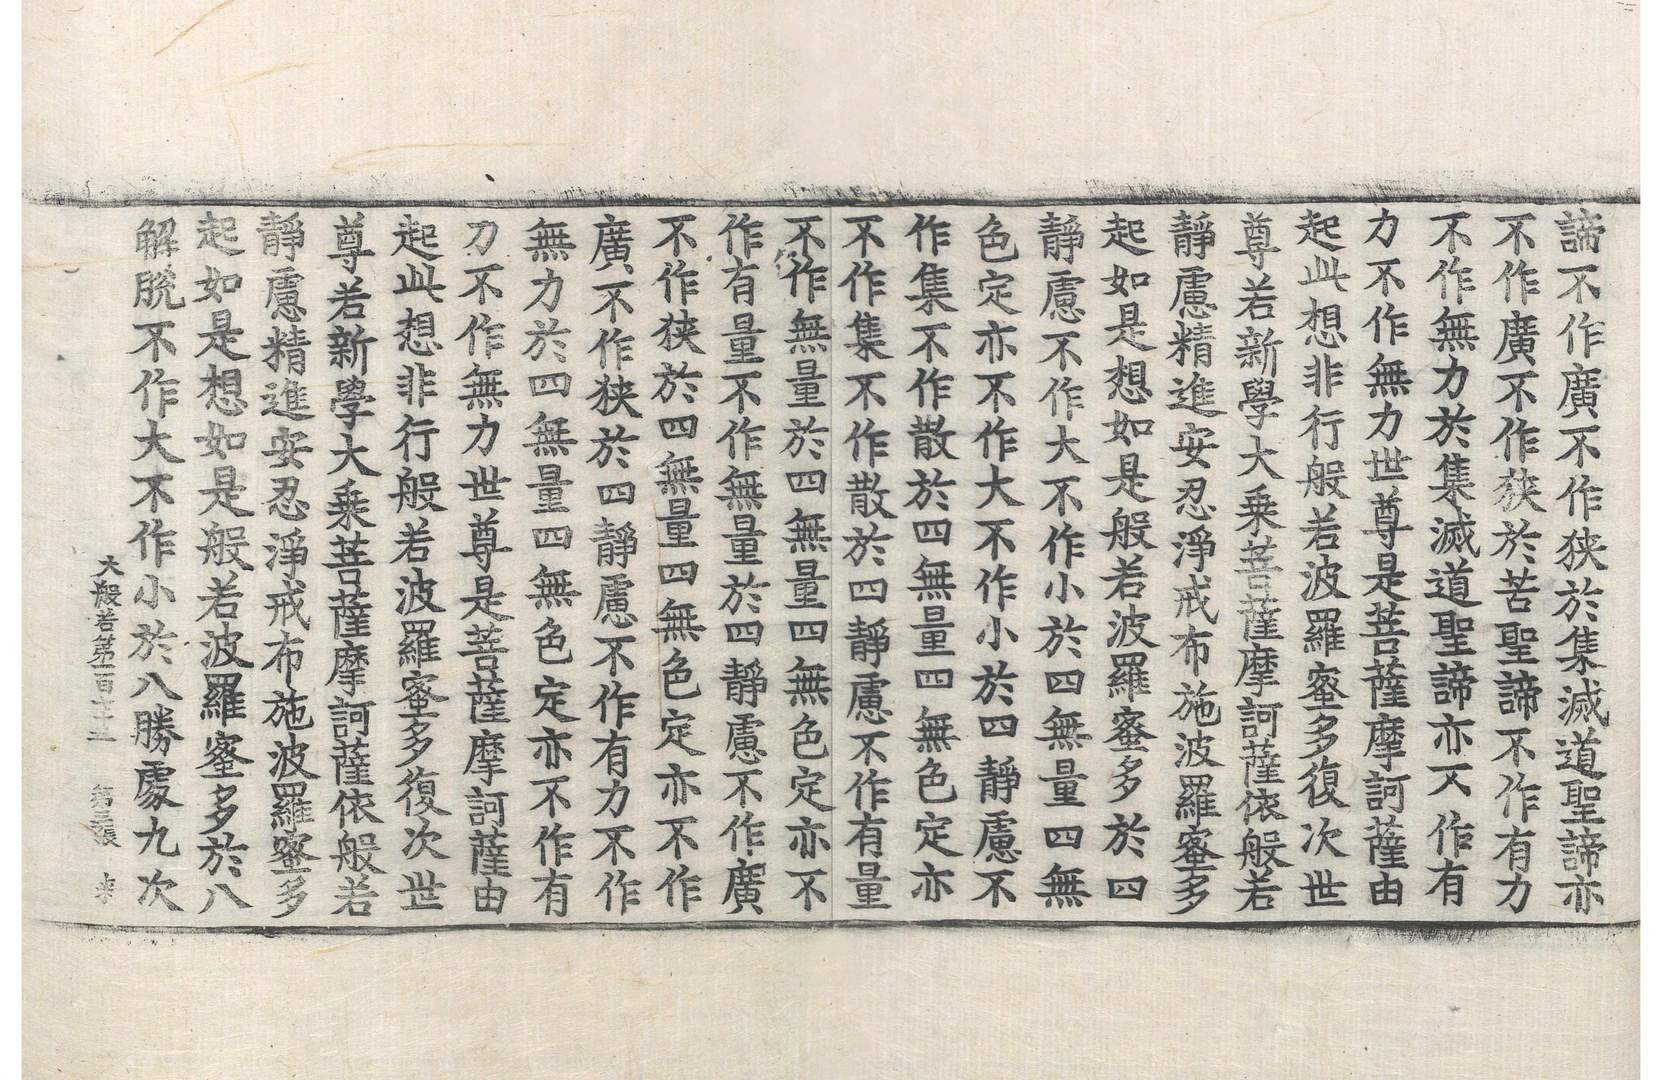 諦不作廣不作狹於集滅道聖諦亦
不作廣不作狹於苦聖諦不作有力
不作無力於集滅道聖諦亦不作有
力不作無力世尊是菩薩摩訶薩由
起此想非行般若波羅蜜多復次世
尊若新學大乘菩薩摩訶薩依般若
靜慮精進安忍淨戒布施波羅蜜多
起如是想如是般若波羅蜜多於四
靜慮不作大不作小於四無量四無
色定亦不作大不作小於四靜慮不
作集不作散於四無量四無色定亦
不作集不作散於四靜慮不作有量
不作無量於四無量四無色定亦不
作有量不作無量於四靜慮不作廣
不作狹於四無量四無色定亦不作
廣不作狹於四靜慮不作有力不作
無力於四無量四無色定亦不作有
力不作無力世尊是菩薩摩訶薩由
起此想非行般若波羅蜜多復次世
尊若新學大乘菩薩摩訶薩依般若
靜慮精進安忍淨戒布施波羅蜜多
起如是想如是般若波羅蜜多於八
解脫不作大不作小於八勝處九次
大般若第一百七十三 第三張 来